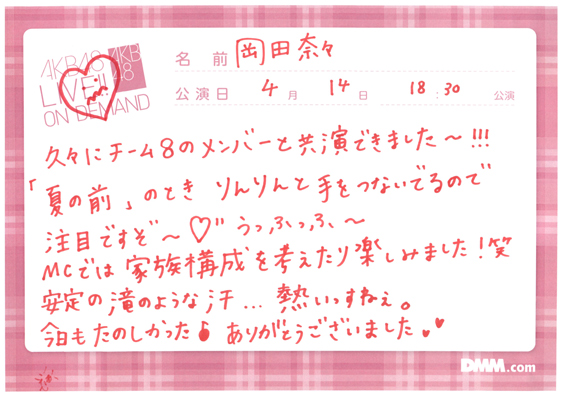 AKB48
LIVE!!
ON DEMAND
AKB
48
名 前 岡田奈々
公演日 4月 14日 18:30 公演
久々にチーム8のメンバーと共演できました〜!!!
「夏の前」のとき りんりんと手をつないでるので
注目ですぞ〜♡" うっふっふ、〜
MCでは家族構成を考えたり楽しみました!笑
安定の滝のような汗... 熱いっすねぇ。
今日もたのしかった ありがとうございました
DMM.com